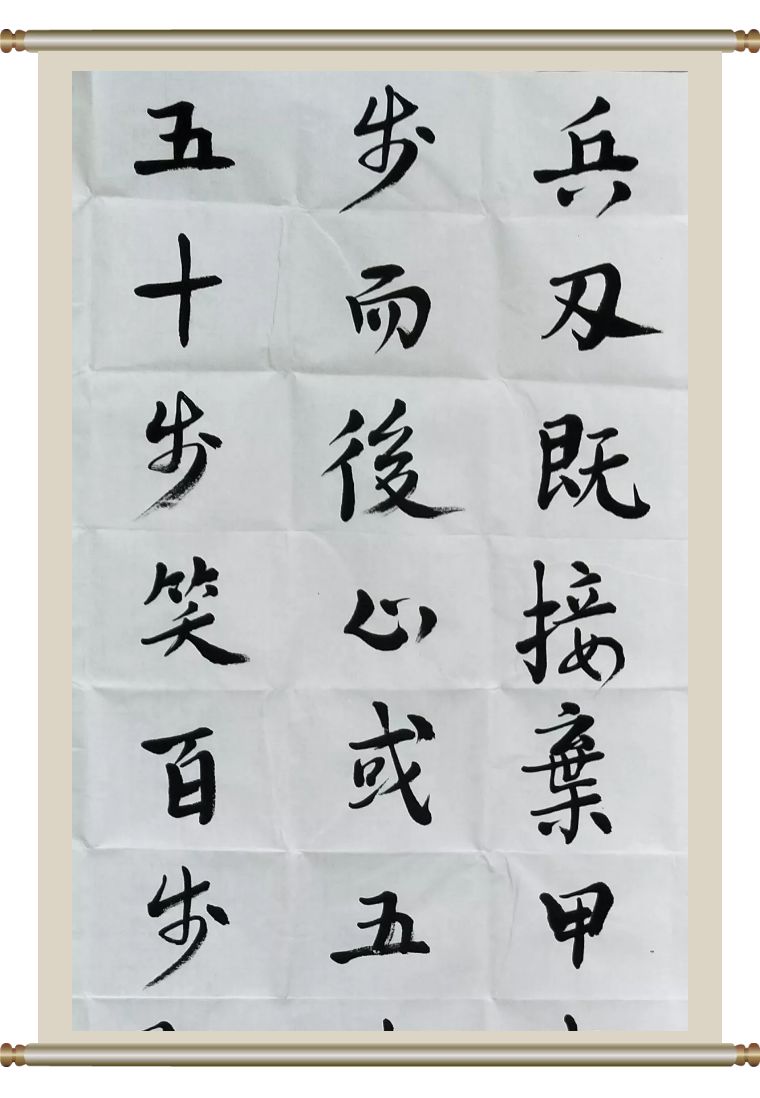 兵刃既接棄甲
步而後止或五
五十步笑百步